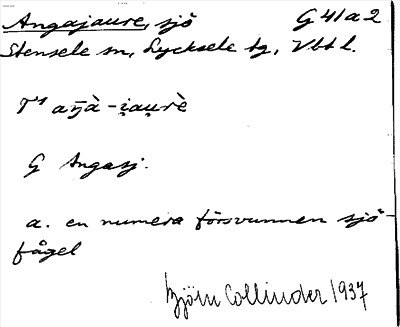 Angajaure, sjö G 41 a 2
Stensele sn, Lycksele tg, Vbt l.
T¹ aŋ̄à - i̯au̯rè
G Angasj.
a. en numera försvunnen sjö-
fågel
Björn Collinder 1937